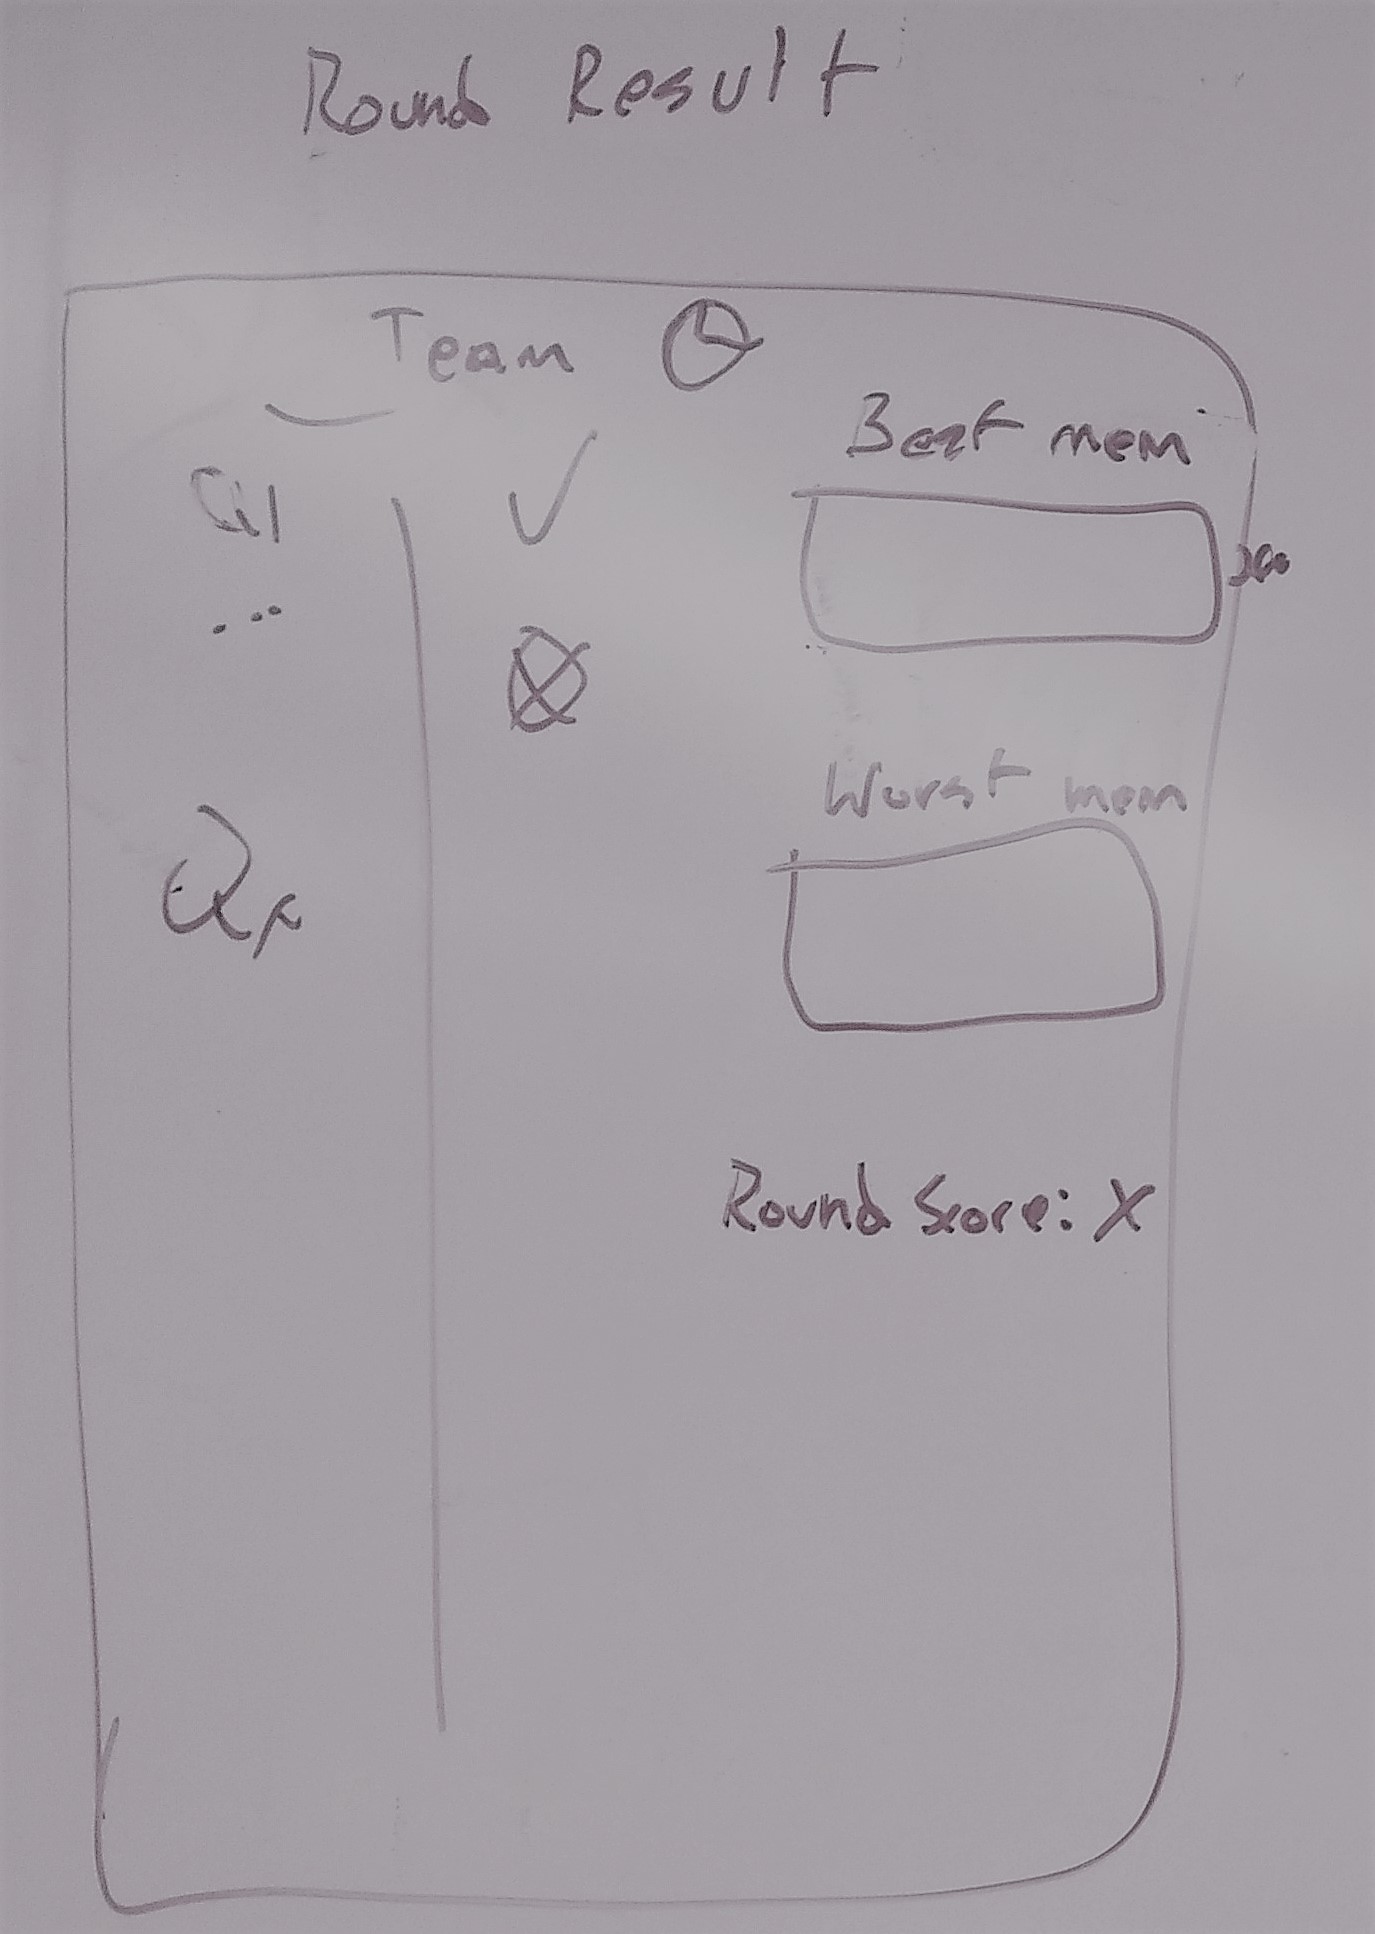 Round Result
Team
Best mem
Q1
...
Worst mem
Qx
Round Score: X